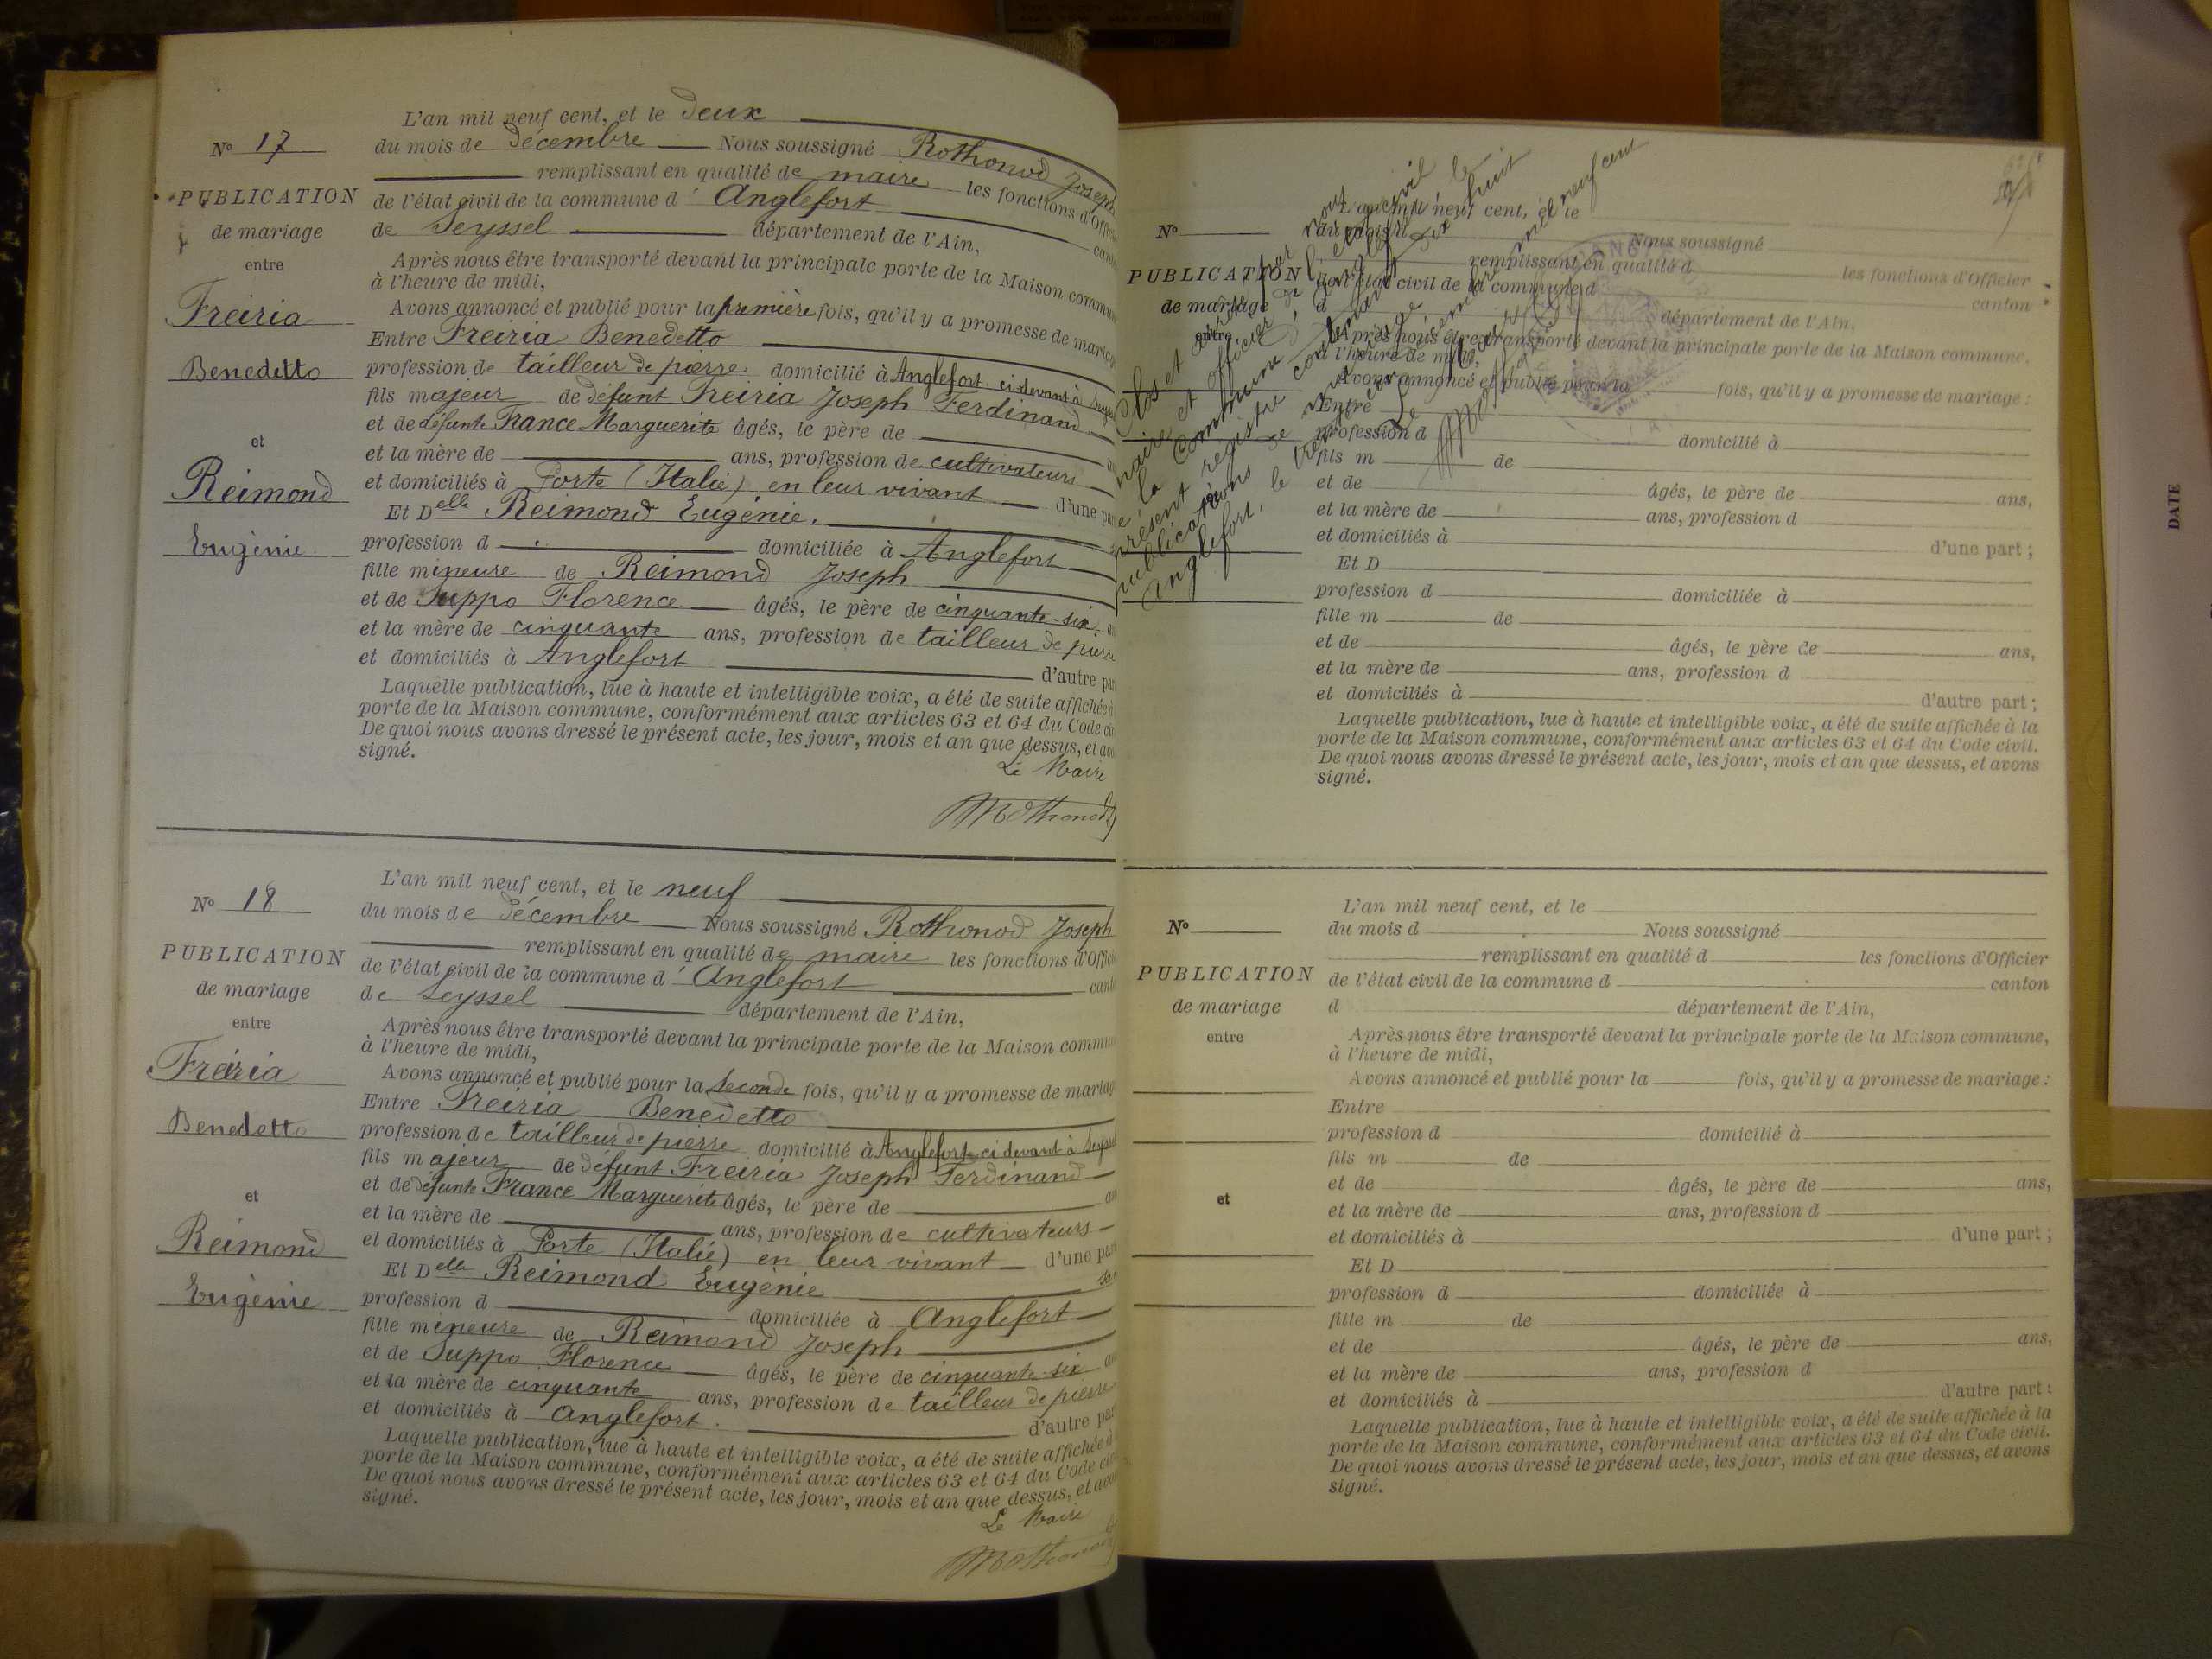 N° 17
PUBLICATION
de mariage
entre
Freiria
Benedetto
et
Reimond
Eugénie
L'an mil neuf cent, et le deux
du mois de décembre Nous soussigné Rothonod Joseph
remplissant en qualité de maire les fonctions d'Offic
de l'état civil de la commune d' Anglefort cant
de Seyssel département de l'Ain,
Après nous être transporté devant la principale porte de la Maison commun
à l'heure de midi,
Avons annoncé et publié pour la première fois, qu'il y a promesse de mariag
Entre Freiria Benedetto
profession de tailleur de pierre domicilié à Anglefort ci-devant à Seyss
fils majeur de défunt Freiria Joseph Ferdinand
et de défunte France Marguerite âgés, le père de an
et la mère de ans, profession de cultivateurs
et domiciliés à Porte (Italie) en leur vivant d'une par
Et Delle Reimond Eugénie,
profession d domiciliée à Anglefort
fille mineure de Reimond Joseph
et de Suppo Florence âgés, le père de cinquante-six an
et la mère de cinquante ans, profession de tailleur de pierre
et domiciliés à Anglefort d'autre par
Laquelle publication, lue à haute et intelligible voix, a été de suite affichée à
porte de la Maison commune, conformément aux articles 63 et 64 du Code civ
De quoi nous avons dressé le présent acte, les jour, mois et an que dessus, et avo
signé.
Le Maire
Rothonod
N° 18
PUBLICATION
de mariage
entre
Freiria
Benedetto
et
Reimond
Eugénie
L'an mil neuf cent, et le neuf
du mois de décembre Nous soussigné Rothonod Joseph
remplissant en qualité de maire les fonctions d'Offici
de l'état civil de la commune d' Anglefort canto
de Seyssel département de l'Ain,
Après nous être transporté devant la principale porte de la Maison commun
à l'heure de midi,
Avons annoncé et publié pour la seconde fois, qu'il y a promesse de mariag
Entre Freiria Benedetto
profession de tailleur de pierre domicilié à Anglefort ci devant à Seyssel
fils majeur de défunt Freiria Joseph Ferdinand
et de défunte France Marguerite âgés, le père de an
et la mère de ans, profession de cultivateurs
et domiciliés à Porte (Italie) en leur vivant d'une par
Et Delle Reimond Eugénie
profession d domiciliée à Anglefort
fille mineure de Reimond Joseph
et de Suppo Florence âgés, le père de cinquante-six an
et la mère de cinquante ans, profession de tailleur de pierre
et domiciliés à Anglefort. d'autre par
Laquelle publication, lue à haute et intelligible voix, a été de suite affichée à
porte de la Maison commune, conformément aux articles 63 et 64 du Code civ
De quoi nous avons dressé le présent acte, les jour, mois et an que dessus, et avo
signé.
Le Maire
Rothonod
Clos et par nous
maire et officier de l'état civil
de la commune d'Anglefort le
présent registre contenant dix huit
publications de mariage
Anglefort, le décembre mil neuf cent
Le Maire
N°
PUBLICATION
de mariage
entre
L'an mil neuf cent, et le
du mois d Nous soussigné
remplissant en qualité d les fonctions d'Officier
de l'état civil de la commune d canton
d département de l'Ain,
Après nous être transporté devant la principale porte de la Maison commune,
à l'heure de midi,
Avons annoncé et publié pour la fois, qu'il y a promesse de mariage :
Entre
profession d domicilié à
fils m de
et de âgés, le père de ans,
et la mère de ans, profession d
et domiciliés à d'une part ;
Et D
profession d domiciliée à
fille m de
et de âgés, le père de ans,
et la mère de ans, profession d
et domiciliés à d'autre part ;
Laquelle publication, lue à haute et intelligible voix, a été de suite affichée à la
porte de la Maison commune, conformément aux articles 63 et 64 du Code civil.
De quoi nous avons dressé le présent acte, les jour, mois et an que dessus, et avons
signé.
N°
PUBLICATION
de mariage
entre
et
L'an mil neuf cent, et le
du mois d Nous soussigné
remplissant en qualité d les fonctions d'Officier
de l'état civil de la commune d canton
d département de l'Ain,
Après nous être transporté devant la principale porte de la Maison commune,
à l'heure de midi,
Avons annoncé et publié pour la fois, qu'il y a promesse de mariage :
Entre
profession d domicilié à
fils m de
et de âgés, le père de ans,
et la mère de ans, profession d
et domiciliés à d'une part ;
Et D
profession d domiciliée à
fille m de
et de âgés, le père de ans,
et la mère de ans, profession d
et domiciliés à d'autre part :
Laquelle publication, lue à haute et intelligible voix, a été de suite affichée à la
porte de la Maison commune, conformément aux articles 63 et 64 du Code civil.
De quoi nous avons dressé le présent acte, les jour, mois et an que dessus, et avons
signé.
DATE